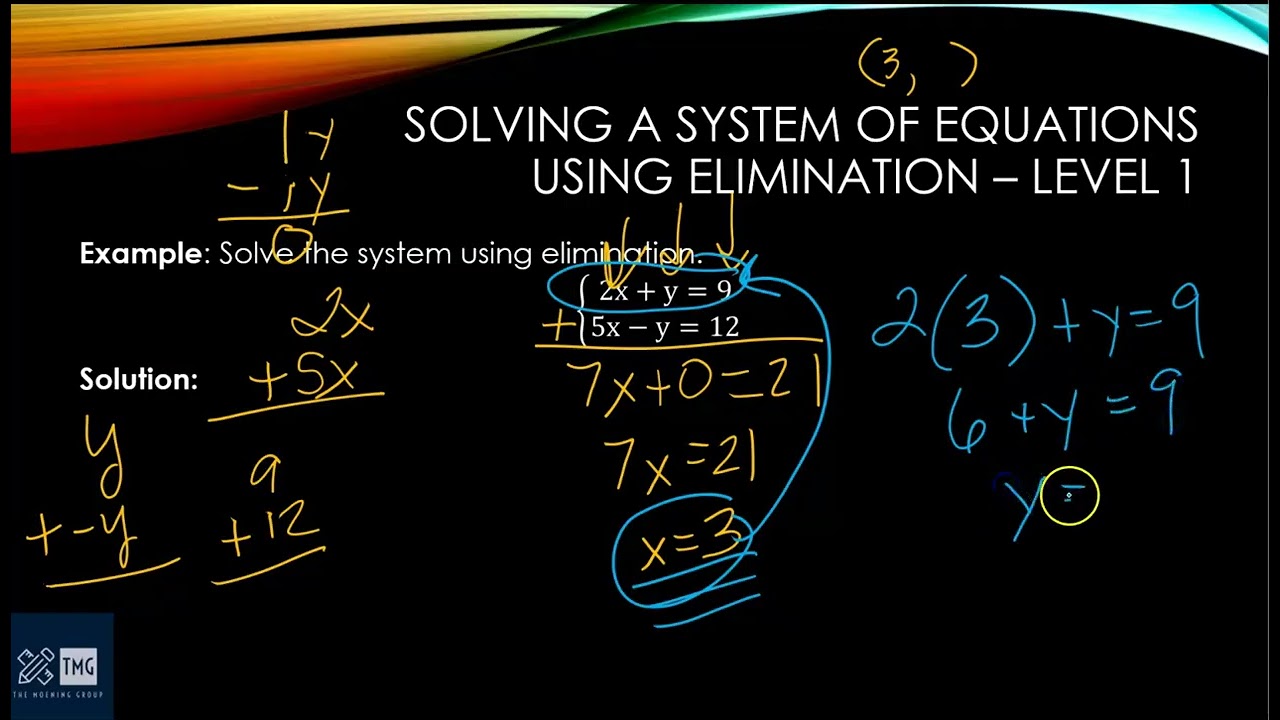 (3, )
SOLVING A SYSTEM OF EQUATIONS
USING ELIMINATION – LEVEL 1
1y
- 1y
0
Example: Solve the system using elimination.
2x + y = 9
+ 5x − y = 12
7x+0=21
7x=21
x=3
2x
+5x
Solution:
y
+-y
9
+12
2(3)+y=9
6+y=9
y=
TMG
THE MOENING GROUP